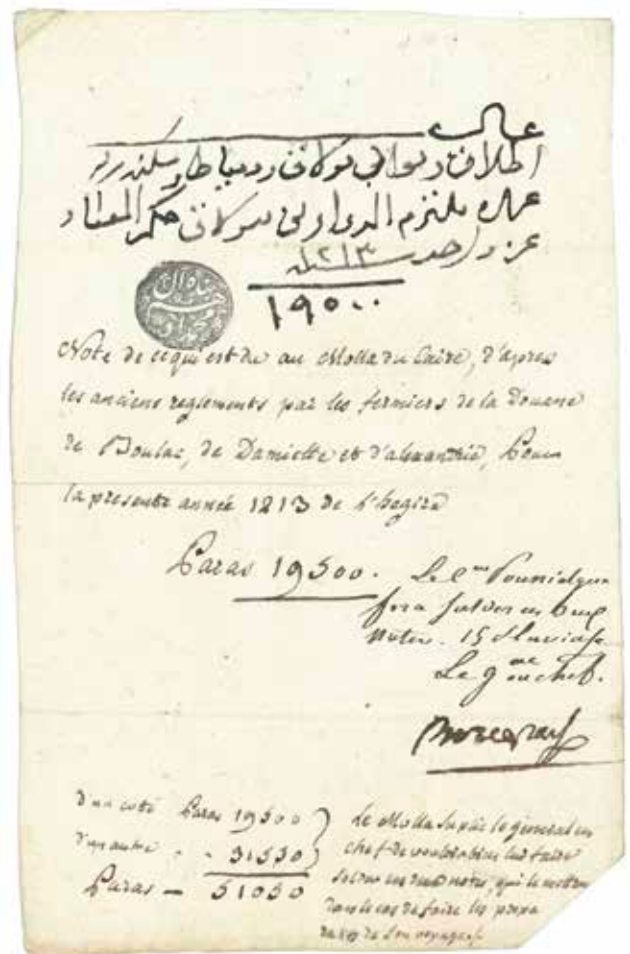 اطلاق بولاق ودمياط
ملتزم بولاق المعتاد
١٢١٣
١٩٥٠٠
Note de ce qui est du au Molla du Caire, d'apres
les anciens reglements par les fermiers de la Douane
de Boulac, de Damiette et d'alexandrie, Pour
la presente année 1213 de l'hegire
Paras 19500.
Le Cen Poussielgue
fera solder ces deux
notes. 15 pluviose
Le gen en chef.
d'un coté Paras 19500
d'un autre - 31550
Paras - 51050
Le Molla supplie le general en
chef de vouloir bien lui faire
solder ces deux notes, qui le mettra
dans le cas de faire les prepa
de son voyage